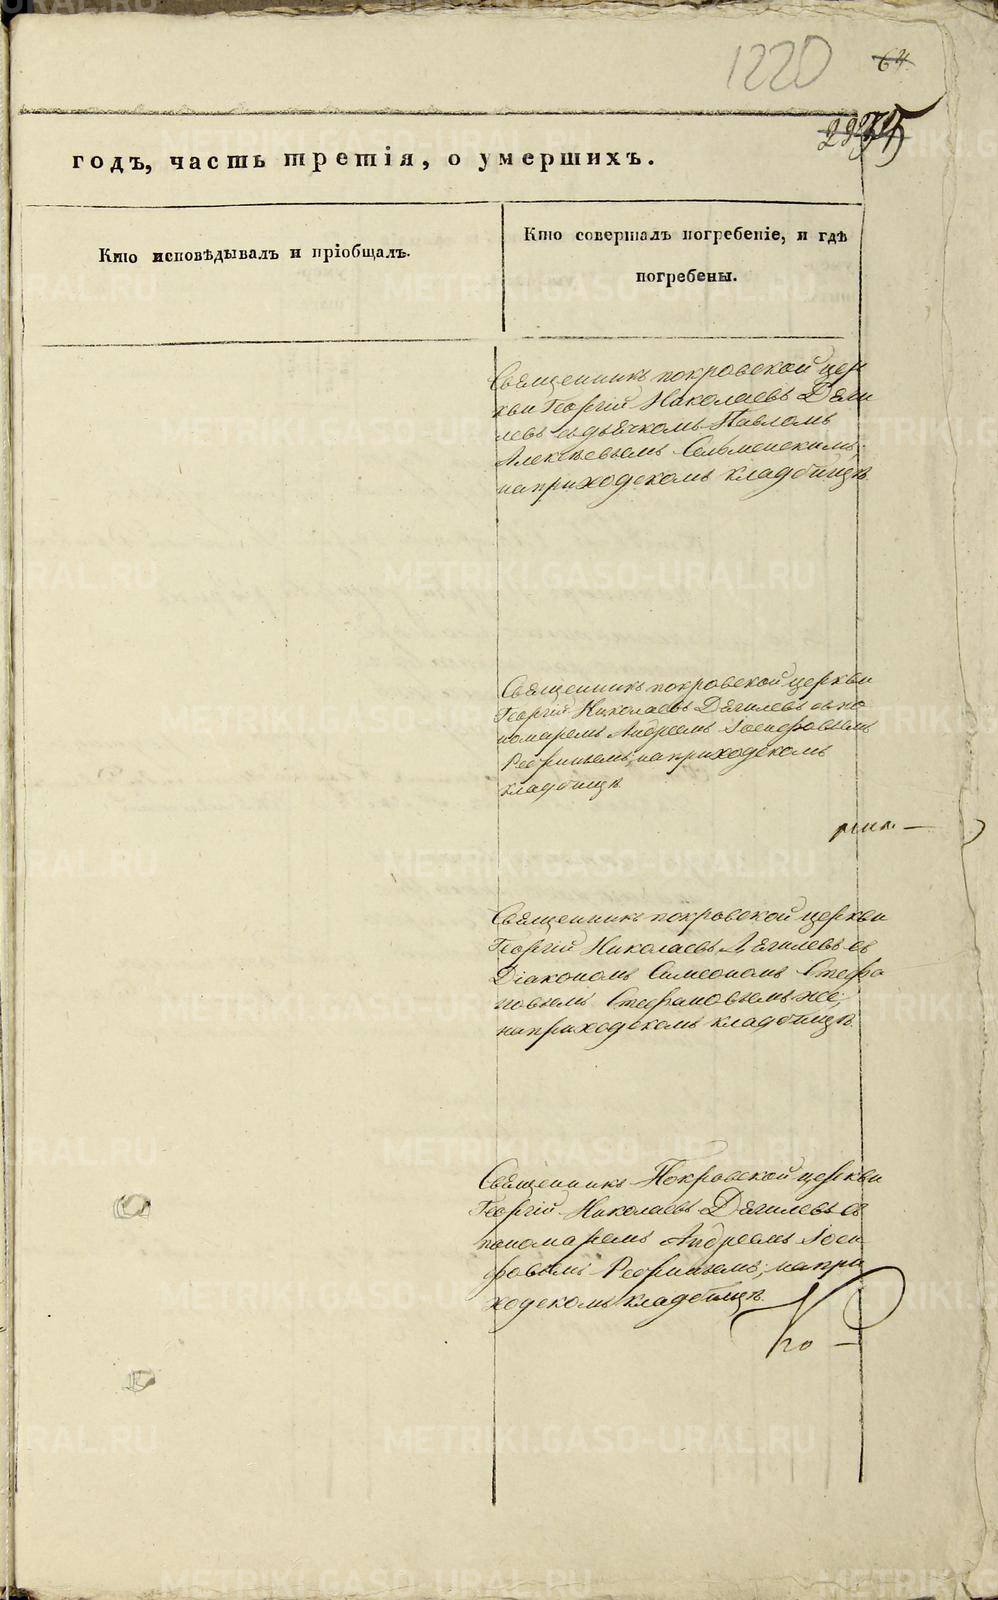 1220
64
годъ, часть третія, о умершихъ.
Кто исповѣдывалъ и пріобщалъ.
Кто совершалъ погребеніе, и гдѣ
погребены.
Священникъ покровской цер
кви Георгій Николаевъ Дяги
левъ съ дьячкомъ Павломъ
Алексѣевымъ Сельменскимъ;
на приходскомъ кладбищѣ.
Священникъ покровской церкви
Георгій Николаевъ Дягилевъ съ по
номаремъ Андреемъ Іосифовымъ
на приходскомъ
кладбищѣ
Священникъ покровской церкви
Георгій Николаевъ Дягилевъ съ
Діакономъ Симеономъ Стефа
новымъ Стефановымъ же;
на приходскомъ кладбищѣ.
Священникъ Покровской церкви
Георгій Николаевъ Дягилевъ съ
пономаремъ Андреемъ Іоси
фовымъ на при
ходскомъ кладбищѣ.
METRIKI.GASO-URAL.RU